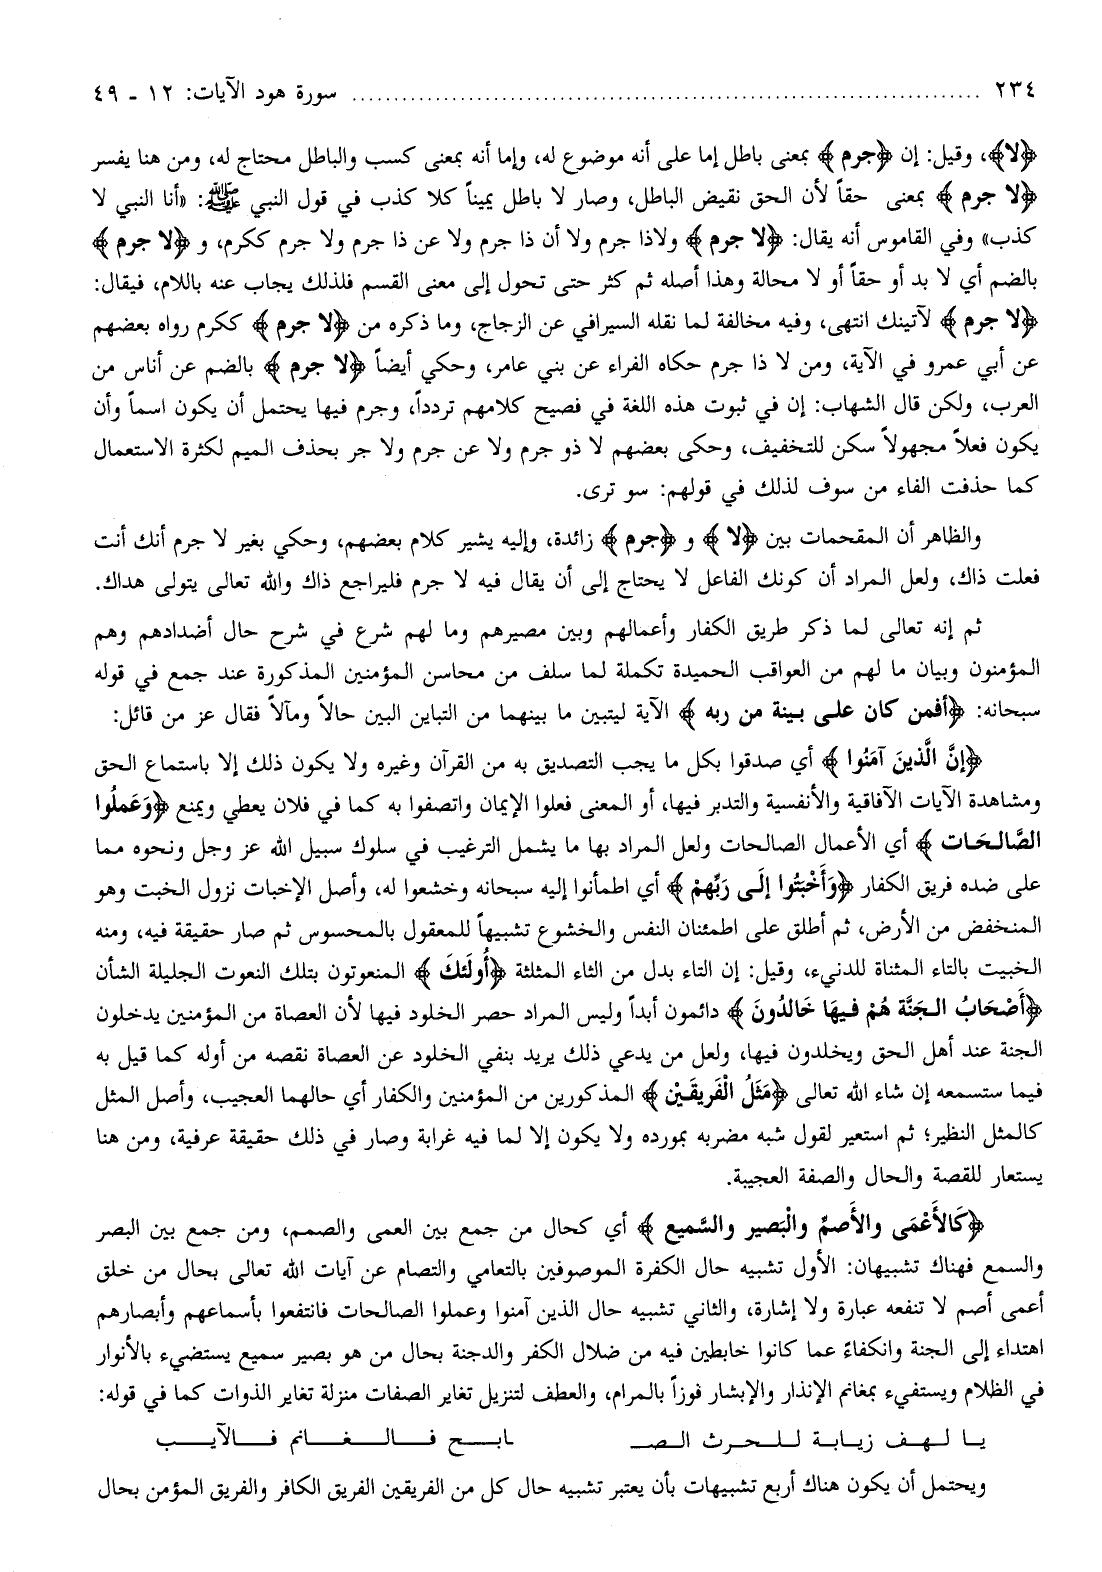 ٢٣٤ ........................................................................ سورة هود الآيات: ١٢ ـ ٤٩
﴿لا﴾، وقيل: إن ﴿جرم﴾ بمعنى باطل إما على أنه موضوع له، وإما أنه بمعنى كسب والباطل محتاج له، ومن هنا يفسر
﴿لا جرم﴾ بمعنى حقاً لأن الحق نقيض الباطل، وصار لا باطل يميناً كلا كذب في قول النبي ﷺ: «أنا النبي لا
كذب» وفي القاموس أنه يقال: ﴿لا جرم﴾ ولاذا جرم ولا أن ذا جرم ولا عن ذا جرم ولا جرم ككرم، و ﴿لا جرم﴾
بالضم أي لا بد أو حقاً أو لا محالة وهذا أصله ثم كثر حتى تحول إلى معنى القسم فلذلك يجاب عنه باللام، فيقال:
﴿لا جرم﴾ لآتينك انتهى، وفيه مخالفة لما نقله السيرافي عن الزجاج، وما ذكره من ﴿لا جرم﴾ ككرم رواه بعضهم
عن أبي عمرو في الآية، ومن لا ذا جرم حكاه الفراء عن بني عامر، وحكي أيضاً ﴿لا جرم﴾ بالضم عن أناس من
العرب، ولكن قال الشهاب: إن في ثبوت هذه اللغة في فصيح كلامهم تردداً، وجرم فيها يحتمل أن يكون اسماً وأن
يكون فعلاً مجهولاً سكن للتخفيف، وحكى بعضهم لا ذو جرم ولا عن جرم ولا جر بحذف الميم لكثرة الاستعمال
كما حذفت الفاء من سوف لذلك في قولهم: سو ترى.
والظاهر أن المقحمات بين ﴿لا﴾ و ﴿جرم﴾ زائدة، وإليه يشير كلام بعضهم، وحكي بغير لا جرم أنك أنت
فعلت ذاك، ولعل المراد أن كونك الفاعل لا يحتاج إلى أن يقال فيه لا جرم فليراجع ذاك والله تعالى يتولى هداك.
ثم إنه تعالى لما ذكر طريق الكفار وأعمالهم وبين مصيرهم وما لهم شرع في شرح حال أضدادهم وهم
المؤمنون وبيان ما لهم من العواقب الحميدة تكملة لما سلف من محاسن المؤمنين المذكورة عند جمع في قوله
سبحانه: ﴿أفمن كان على بينة من ربه﴾ الآية ليتبين ما بينهما من التباين البين حالاً ومآلاً فقال عز من قائل:
﴿إنَّ الَّذينَ آمَنُوا﴾ أي صدقوا بكل ما يجب التصديق به من القرآن وغيره ولا يكون ذلك إلا باستماع الحق
ومشاهدة الآيات الآفاقية والأنفسية والتدبر فيها، أو المعنى فعلوا الإيمان واتصفوا به كما في فلان يعطي ويمنع ﴿وَعَملُوا
الصَّالحَات﴾ أي الأعمال الصالحات ولعل المراد بها ما يشمل الترغيب في سلوك سبيل الله عز وجل ونحوه مما
على ضده فريق الكفار ﴿وَأَخْبَتُوا إلَى رَبِّهمْ﴾ أي اطمأنوا إليه سبحانه وخشعوا له، وأصل الإخبات نزول الخبت وهو
المنخفض من الأرض، ثم أطلق على اطمئنان النفس والخشوع تشبيهاً للمعقول بالمحسوس ثم صار حقيقة فيه، ومنه
الخبيت بالتاء المثناة للدنيء، وقيل: إن التاء بدل من الثاء المثلثة ﴿أُولَئكَ﴾ المنعوتون بتلك النعوت الجليلة الشأن
﴿أَصْحَابُ الجَنَّة هُمْ فيهَا خَالدُونَ﴾ دائمون أبداً وليس المراد حصر الخلود فيها لأن العصاة من المؤمنين يدخلون
الجنة عند أهل الحق ويخلدون فيها، ولعل من يدعي ذلك يريد بنفي الخلود عن العصاة نقصه من أوله كما قيل به
فيما ستسمعه إن شاء الله تعالى ﴿مَثَلُ الْفَريقَيْن﴾ المذكورين من المؤمنين والكفار أي حالهما العجيب، وأصل المثل
كالمثل النظير؛ ثم استعير لقول شبه مضربه بمورده ولا يكون إلا لما فيه غرابة وصار في ذلك حقيقة عرفية، ومن هنا
يستعار للقصة والحال والصفة العجيبة.
﴿كَالأَعْمَى والأَصمِّ والْبَصير والسَّميع﴾ أي كحال من جمع بين العمى والصمم، ومن جمع بين البصر
والسمع فهناك تشبيهان: الأول تشبيه حال الكفرة الموصوفين بالتعامي والتصام عن آيات الله تعالى بحال من خلق
أعمى أصم لا تنفعه عبارة ولا إشارة، والثاني تشبيه حال الذين آمنوا وعملوا الصالحات فانتفعوا بأسماعهم وأبصارهم
اهتداء إلى الجنة وانكفاءً عما كانوا خابطين فيه من ضلال الكفر والدجنة بحال من هو بصير سميع يستضيء بالأنوار
في الظلام ويستفيء بمغانم الإنذار والإبشار فوزاً بالمرام، والعطف لتنزيل تغاير الصفات منزلة تغاير الذوات كما في قوله:
يـا لـهـف زيـابـة لـلـحـرث الـصـ ابـــح فـالـغـانم فـالآيـب
ويحتمل أن يكون هناك أربع تشبيهات بأن يعتبر تشبيه حال كل من الفريقين الفريق الكافر والفريق المؤمن بحال